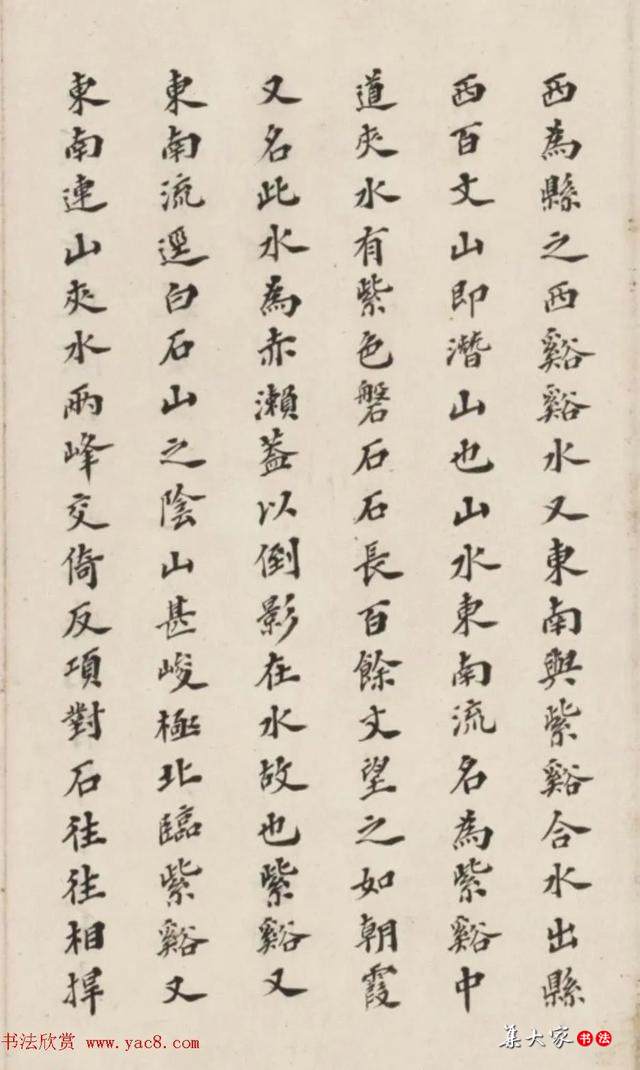 西為縣之西谿谿水又東南與紫谿合水出縣
西百丈山即潛山也山水東南流名為紫谿中
道夾水有紫色磐石石長百餘丈望之如朝霞
又名此水為赤瀨蓋以倒影在水故也紫谿又
東南流逕白石山之陰山甚峻極北臨紫谿又
東南連山夾水兩峰交倚反項對石往往相捍
书法欣赏 www.yac8.com
集大家书法